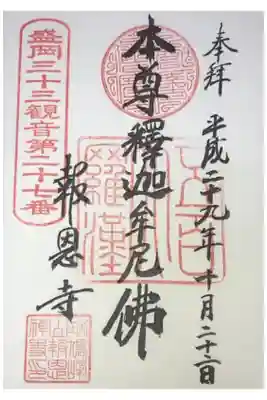 奉拝
平成二十九年十月二十二日
本尊釋迦牟尼佛
五百
羅漢
盛岡三十三観音第二十七番
報恩寺